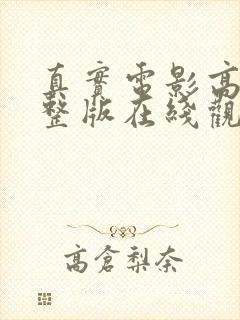 真實電影高
整版在綫觀
高倉梨奈